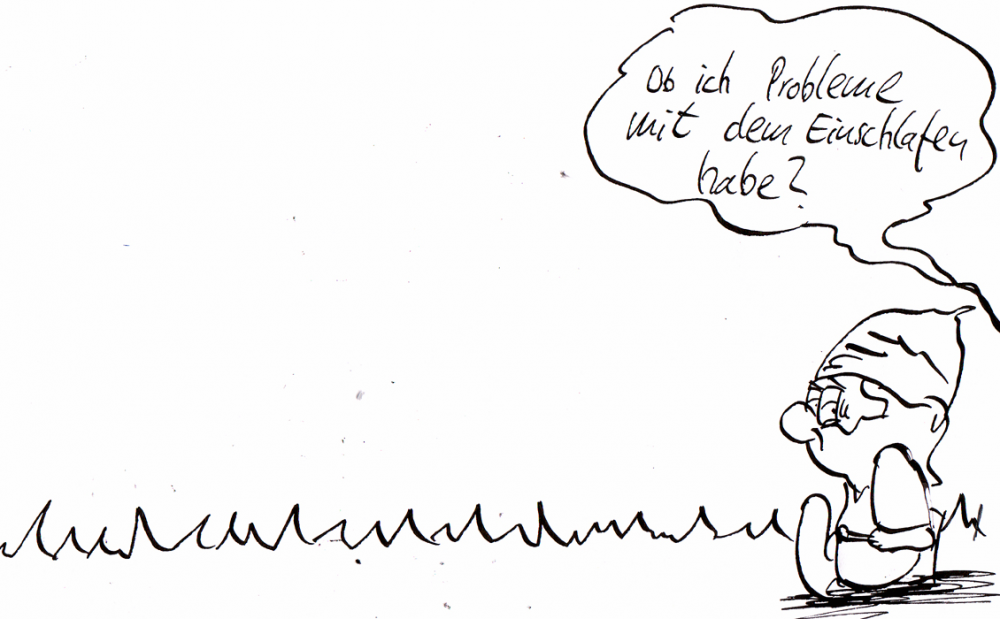 Ob ich Probleme
mit dem Einschlafen
habe?